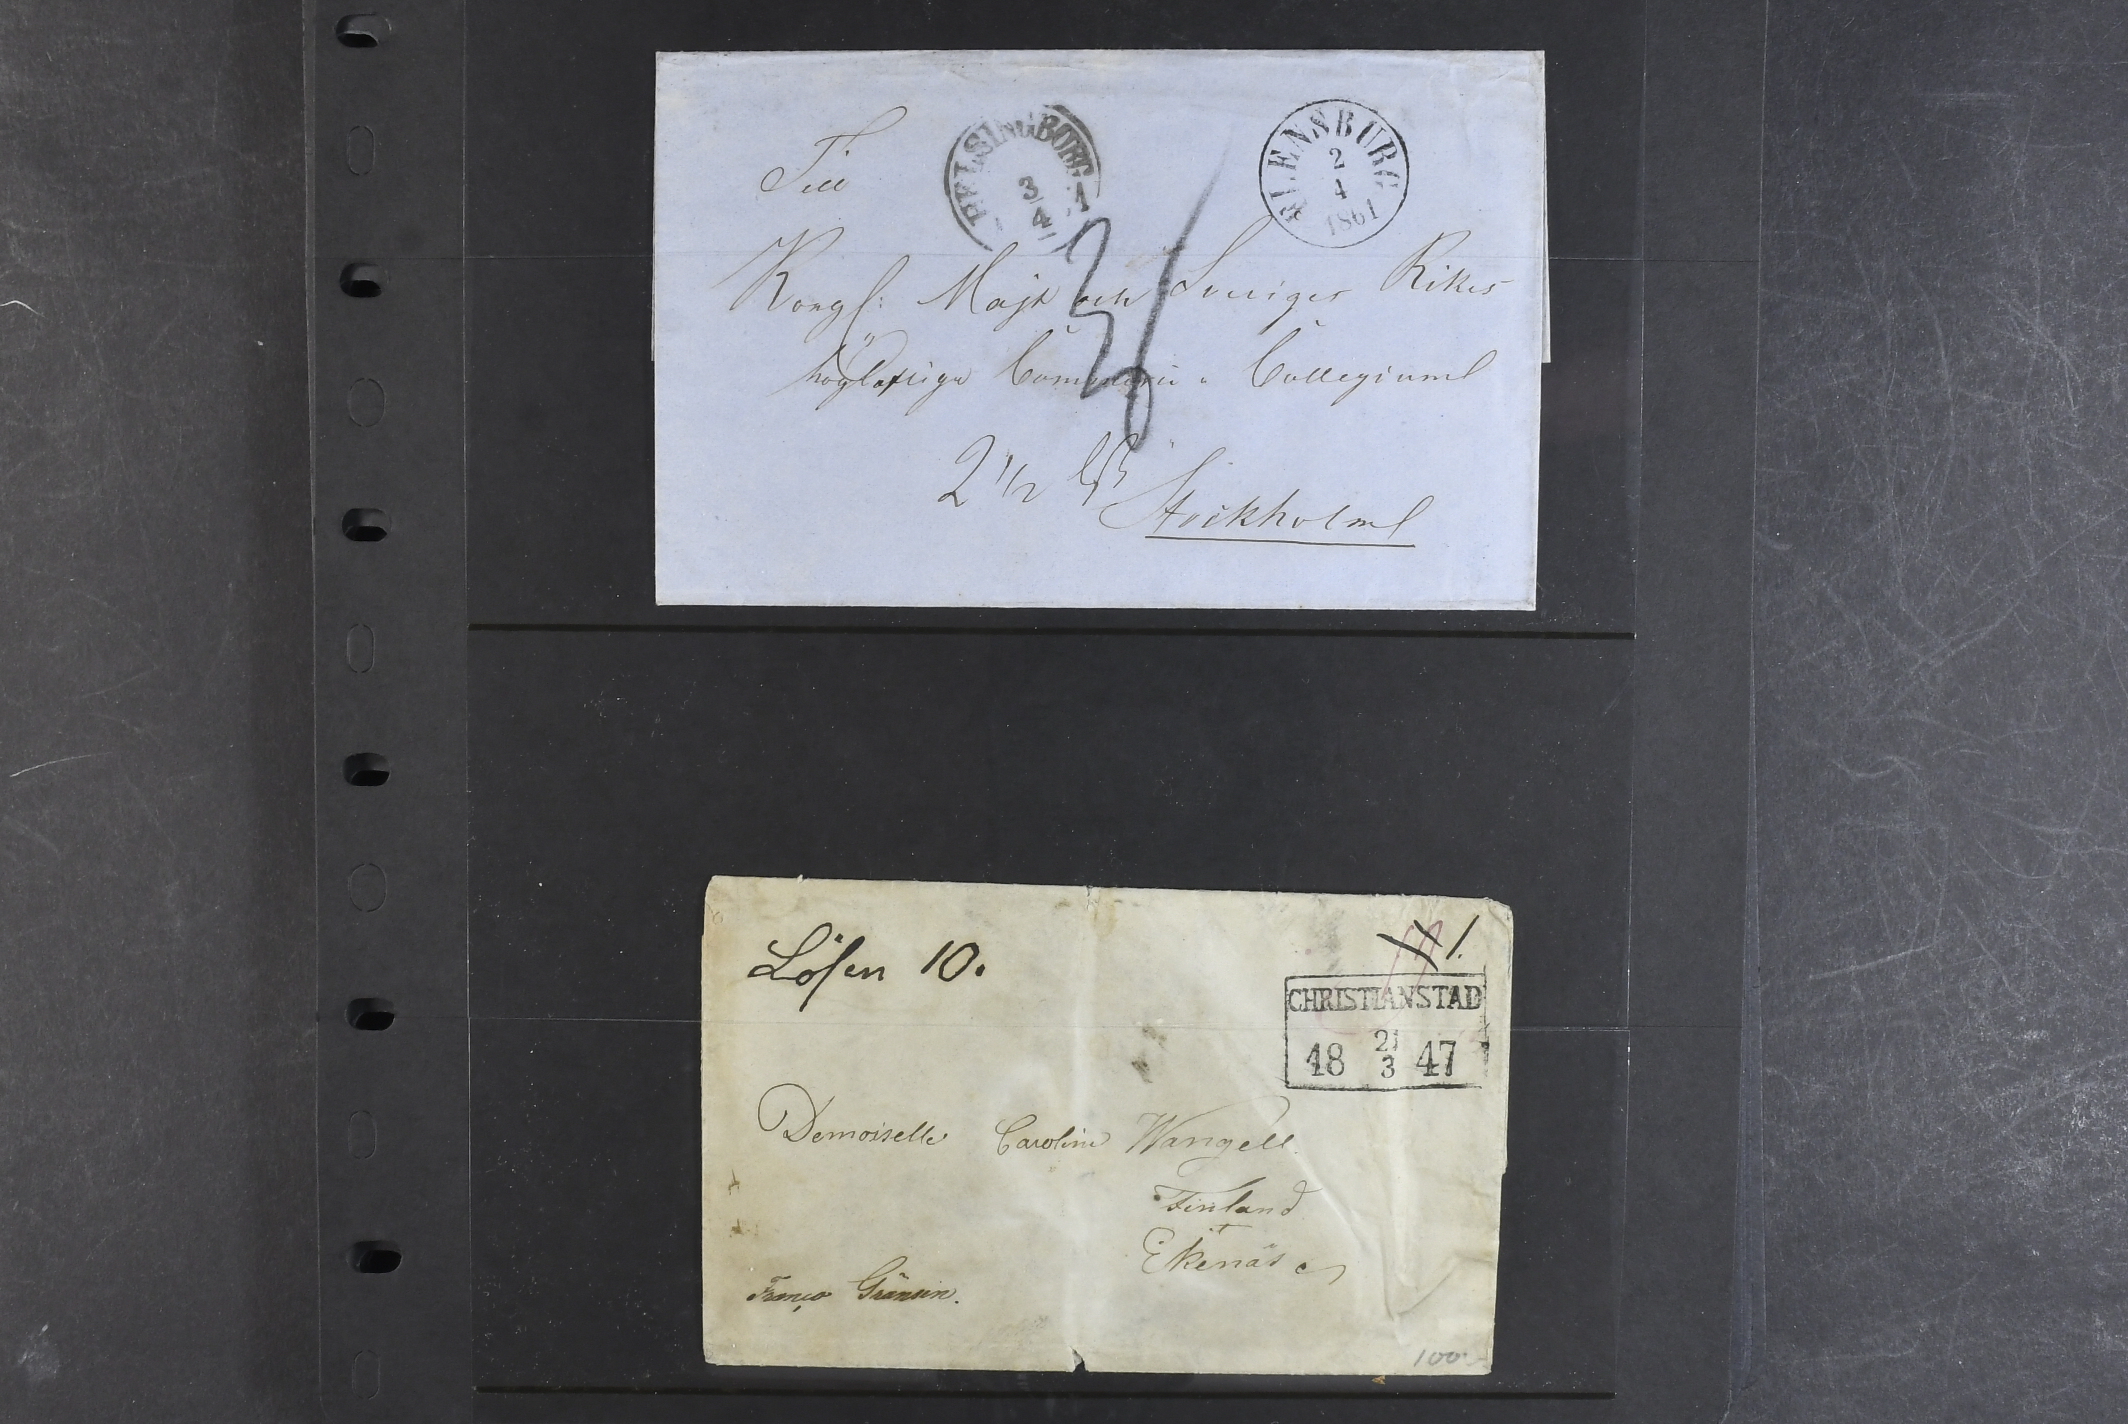 HELSINGBORG
3
4
FLENSBURG
2
4
1861
Till
Kongl: Majts och Sveriges Rikes
högloflige Commerce Collegium
2 1/2
Stockholm
Lösen 10.
1.
CHRISTIANSTAD
18 21/3 47
Demoiselle Caroline Wangell.
Finland
Ekenäs
Franco Gränsen.
100